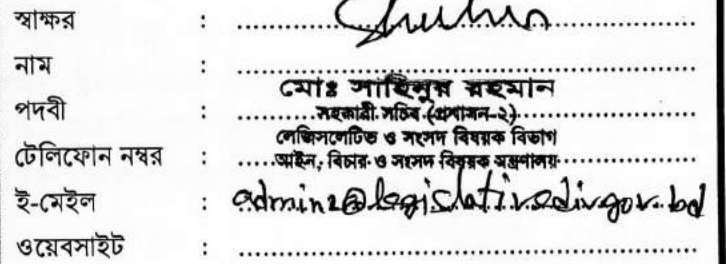 স্বাক্ষর :
নাম :
মোঃ সাহিনুর রহমান
পদবী : সহকারী সচিব (প্রশাসন-২)
লেজিসলেটিভ ও সংসদ বিষয়ক বিভাগ
টেলিফোন নম্বর : আইন, বিচার ও সংসদ বিষয়ক মন্ত্রণালয়
ই-মেইল : admin2@legislativediv.gov.bd
ওয়েবসাইট :